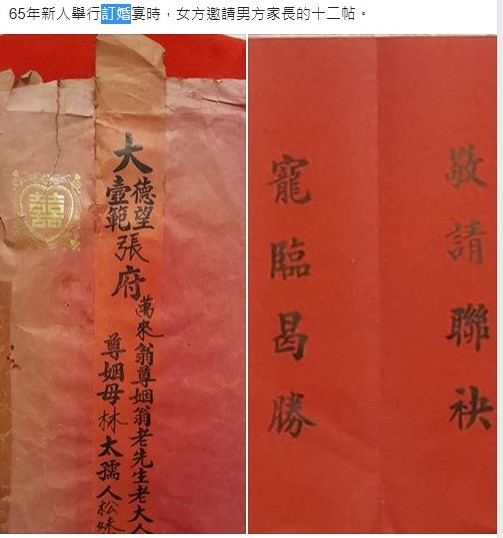 65年新人舉行訂婚宴時，女方邀請男方家長的十二帖。
囍
大
德望
壼範
張府
萬來翁尊姻翁老先生老大人
尊姻母林太孺人松妹
敬請聯袂
寵臨曷勝